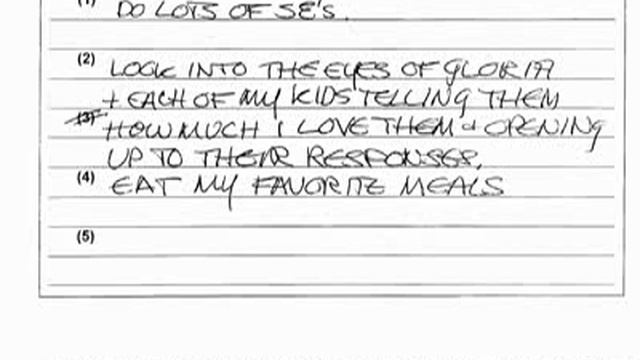 (1) DO LOTS OF SE'S.
(2) LOOK INTO THE EYES OF GLORIA
+ EACH OF MY KIDS TELLING THEM
(3) HOW MUCH I LOVE THEM & OPENING
UP TO THEIR RESPONSES.
(4) EAT MY FAVORITE MEALS
(5)